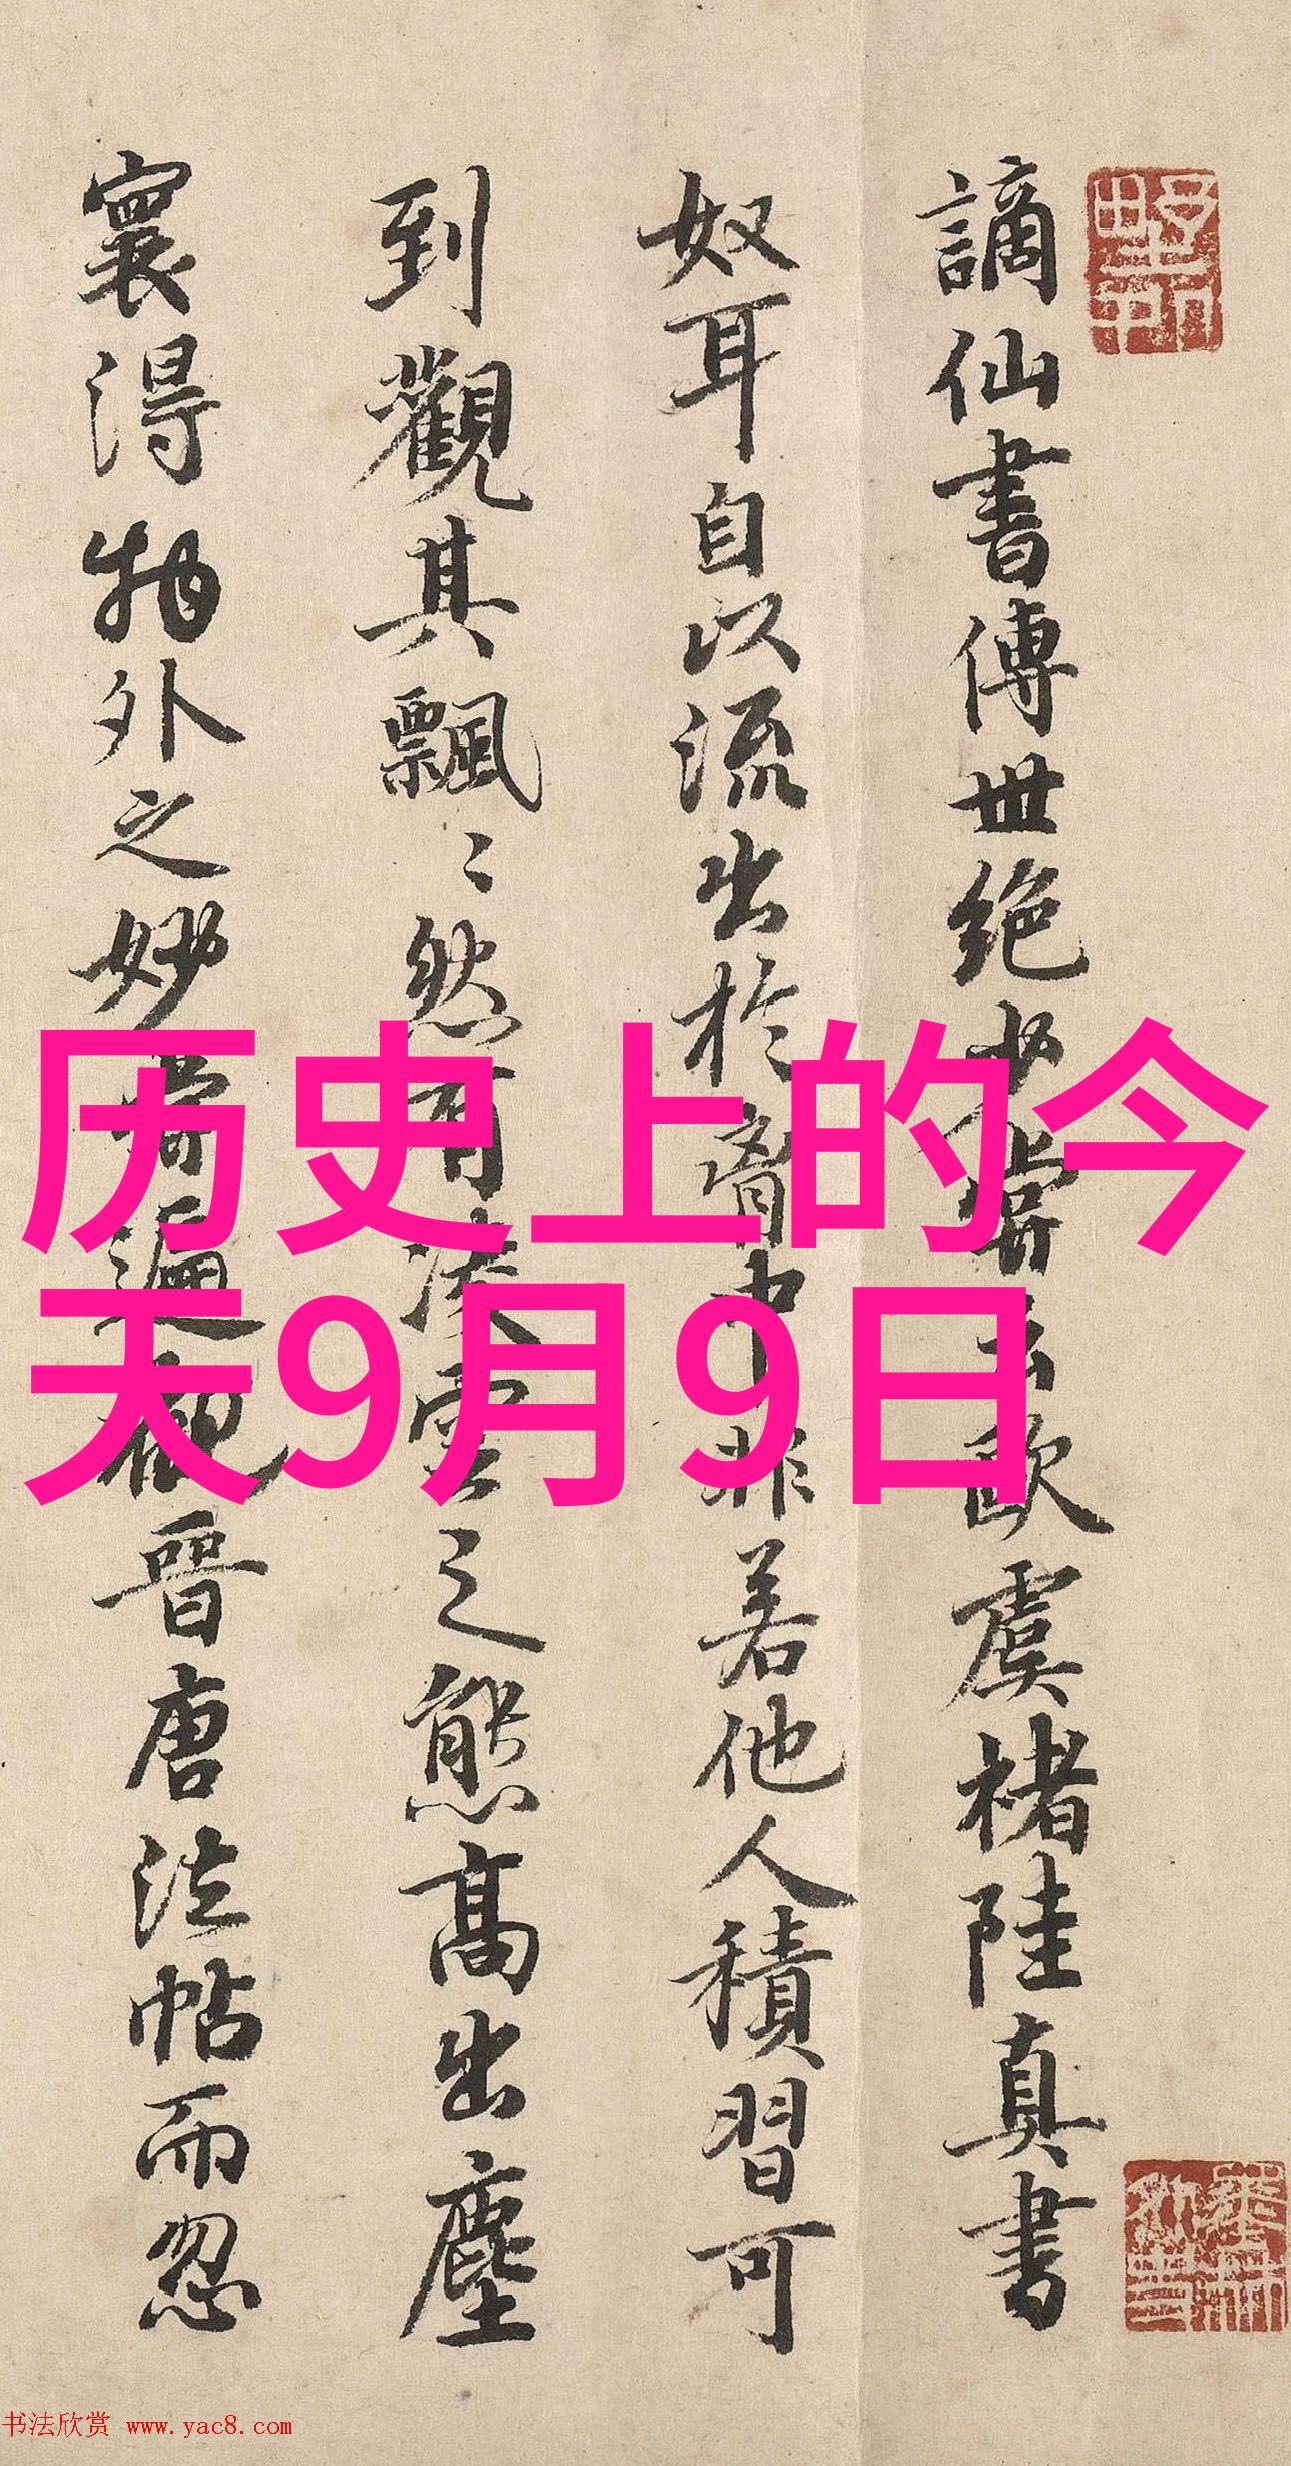 谪仙書傳世絶少嘗云歐虞褚陸真書
奴耳自以流出於胷中非若他人積習可
到觀其飄〻然有凌雲之態高出塵
寰得物外之妙嘗遍觀晉唐法帖而忽
历史上的今
天9月9日
书法欣赏 www.yac8.com